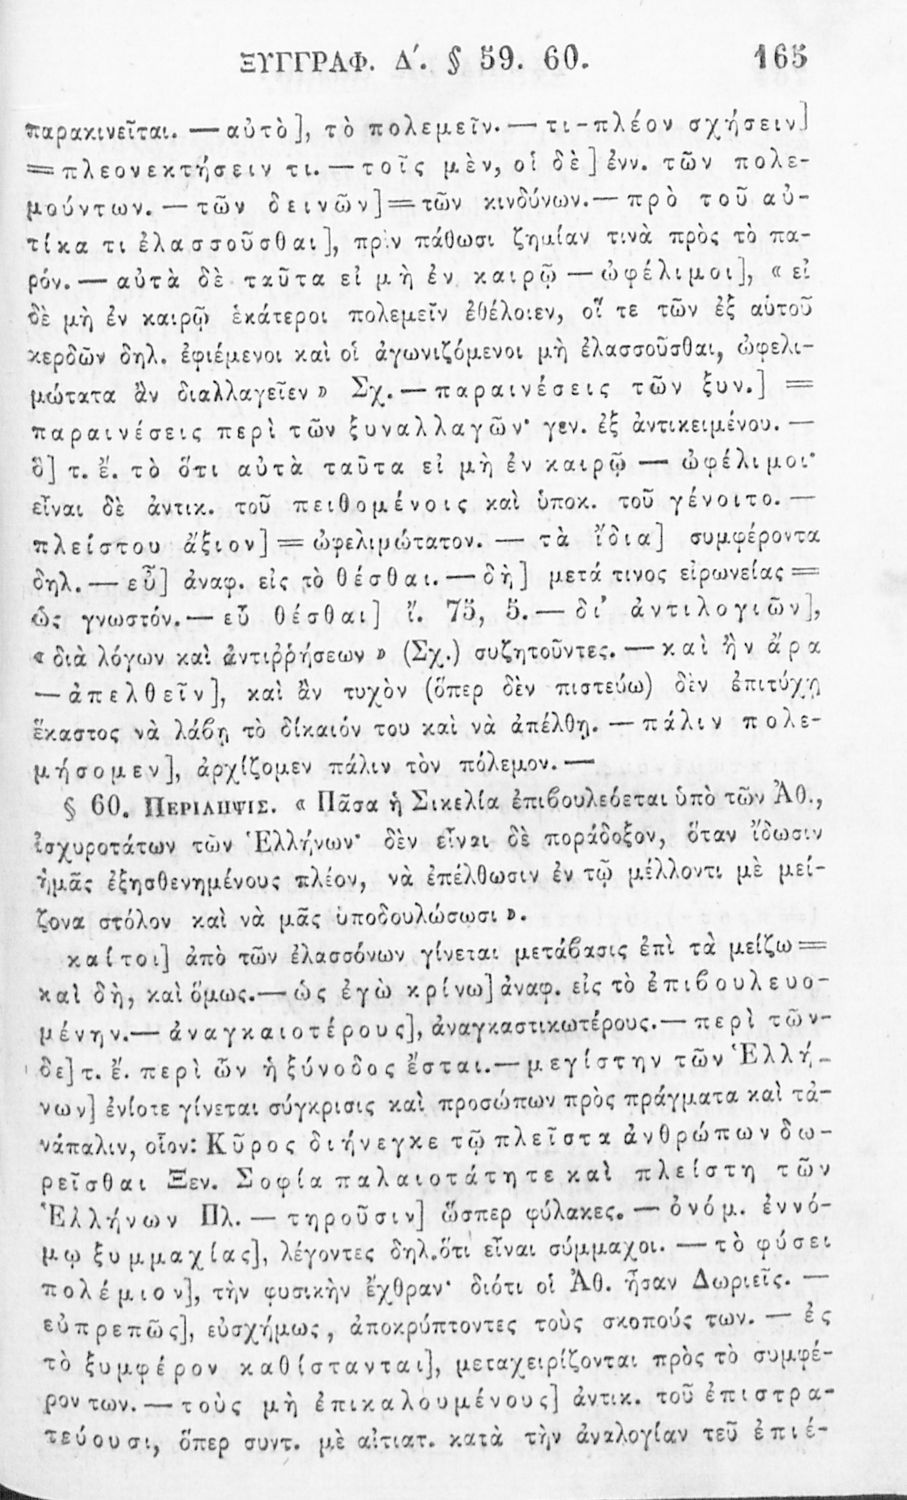 ΞΥΓΓΡΑΦ. Δ΄. § 59. 60. 165
παρακινεῖται. — αὐτὸ], τὸ πολεμεῖν. — τι-πλέον σχήσειν]
= πλεονεκτήσειν τι. — τοῖς μὲν, οἱ δὲ] ἐνν. τῶν πολε-
μούντων. — τῶν δεινῶν] = τῶν κινδύνων. — πρὸ τοῦ αὐ-
τίκα τι ἐλασσοῦσθαι], πρὶν πάθωσι ζημίαν τινὰ πρὸς τὸ πα-
ρόν. — αὐτὰ δὲ ταῦτα εἰ μὴ ἐν καιρῷ — ὠφέλιμοι], « εἰ
δὲ μὴ ἐν καιρῷ ἑκάτεροι πολεμεῖν ἐθέλοιεν, οἵ τε τῶν ἐξ αὐτοῦ
κερδῶν δηλ. ἐφιέμενοι καὶ οἱ ἀγωνιζόμενοι μὴ ἐλασσοῦσθαι, ὠφελι-
μώτατα ἂν διαλλαγεῖεν » Σχ. — παραινέσεις τῶν ξυν.] =
παραινέσεις περὶ τῶν ξυναλλαγῶν· γεν. ἐξ ἀντικειμένου. —
ὃ] τ. ἔ. τὸ ὅτι αὐτὰ ταῦτα εἰ μὴ ἐν καιρῷ — ὠφέλιμοι·
εἶναι δὲ ἀντικ. τοῦ πειθομένοις καὶ ὑποκ. τοῦ γένοιτο. —
πλείστου ἄξιον] = ὠφελιμώτατον. — τὰ ἴδια] συμφέροντα
δηλ. — εὖ] ἀναφ. εἰς τὸ θέσθαι. — δὴ] μετά τινος εἰρωνείας =
ὡς γνωστόν. — εὖ θέσθαι] ἴ. 75, 5. — δι' ἀντιλογιῶν],
« διὰ λόγων καὶ ἀντιῤῥήσεων » (Σχ.) συζητοῦντες. — καὶ ἢν ἄρα
— ἀπελθεῖν], καὶ ἂν τυχὸν (ὅπερ δὲν πιστεύω) δὲν ἐπιτύχῃ
ἕκαστος νὰ λάβῃ τὸ δίκαιόν του καὶ νὰ ἀπέλθῃ. — πάλιν πολε-
μήσομεν], ἀρχίζομεν πάλιν τὸν πόλεμον. —
§ 60. ΠΕΡΙΛΗΨΙΣ. « Πᾶσα ἡ Σικελία ἐπιβουλεύεται ὑπὸ τῶν Ἀθ.,
ἰσχυροτάτων τῶν Ἑλλήνων· δὲν εἶναι δὲ παράδοξον, ὅταν ἴδωσιν
ἡμᾶς ἐξησθενημένους πλέον, νὰ ἐπέλθωσιν ἐν τῷ μέλλοντι μὲ μεί-
ζονα στόλον καὶ νὰ μᾶς ὑποδουλώσωσι ».
καίτοι] ἀπὸ τῶν ἐλασσόνων γίνεται μετάβασις ἐπὶ τὰ μείζω =
καὶ δὴ, καὶ ὅμως. — ὡς ἐγὼ κρίνω] ἀναφ. εἰς τὸ ἐπιβουλευο-
μένην. — ἀναγκαιοτέρους], ἀναγκαστικωτέρους. — περὶ τῶν-
δε] τ. ἔ. περὶ ὧν ἡ ξύνοδος ἔσται. — μεγίστην τῶν Ἑλλή-
νων] ἐνίοτε γίνεται σύγκρισις καὶ προσώπων πρὸς πράγματα καὶ τὰ-
νάπαλιν, οἷον: Κῦρος διήνεγκε τῷ πλεῖστα ἀνθρώπων δω-
ρεῖσθαι Ξεν. Σοφία παλαιοτάτητε καὶ πλείστη τῶν
Ἑλλήνων Πλ. — τηροῦσιν] ὥσπερ φύλακες. — ὀνόμ. ἐννό-
μῳ ξυμμαχίας], λέγοντες δηλ. ὅτι εἶναι σύμμαχοι. — τὸ φύσει
πολέμιον], τὴν φυσικὴν ἔχθραν· διότι οἱ Ἀθ. ἦσαν Δωριεῖς. —
εὐπρεπῶς], εὐσχήμως, ἀποκρύπτοντες τοὺς σκοπούς των. — ἐς
τὸ ξυμφέρον καθίστανται], μεταχειρίζονται πρὸς τὸ συμφέ-
ρον των. — τοὺς μὴ ἐπικαλουμένους] ἀντικ. τοῦ ἐπιστρα-
τεύουσι, ὅπερ συντ. μὲ αἰτιατ. κατὰ τὴν ἀναλογίαν τοῦ ἐπιέ-